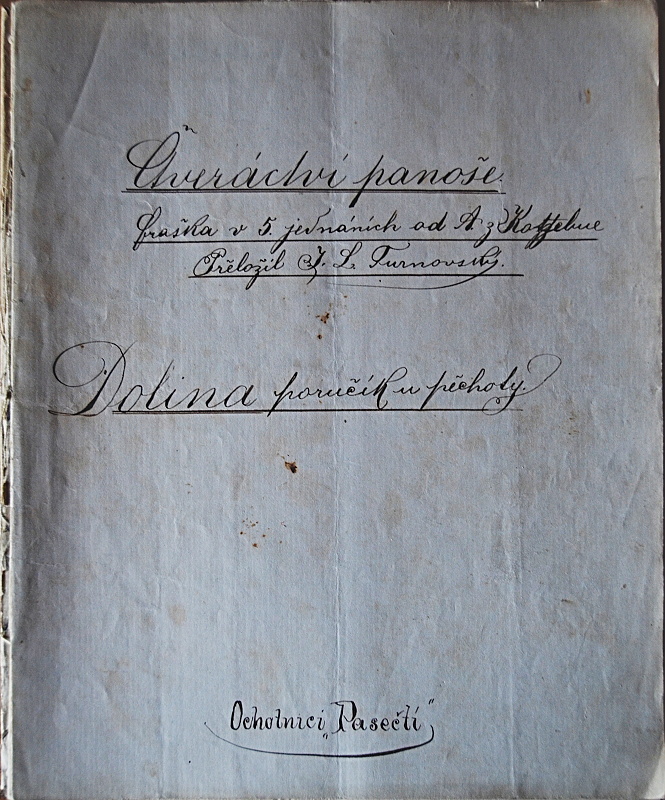 Čtveráctví panoše.
fraška v 5. jednáních od A. z Kotzebue
Přeložil J. L. Turnovský.
Dolina poručík u pěchoty.
Ochotníci „Pasečtí"